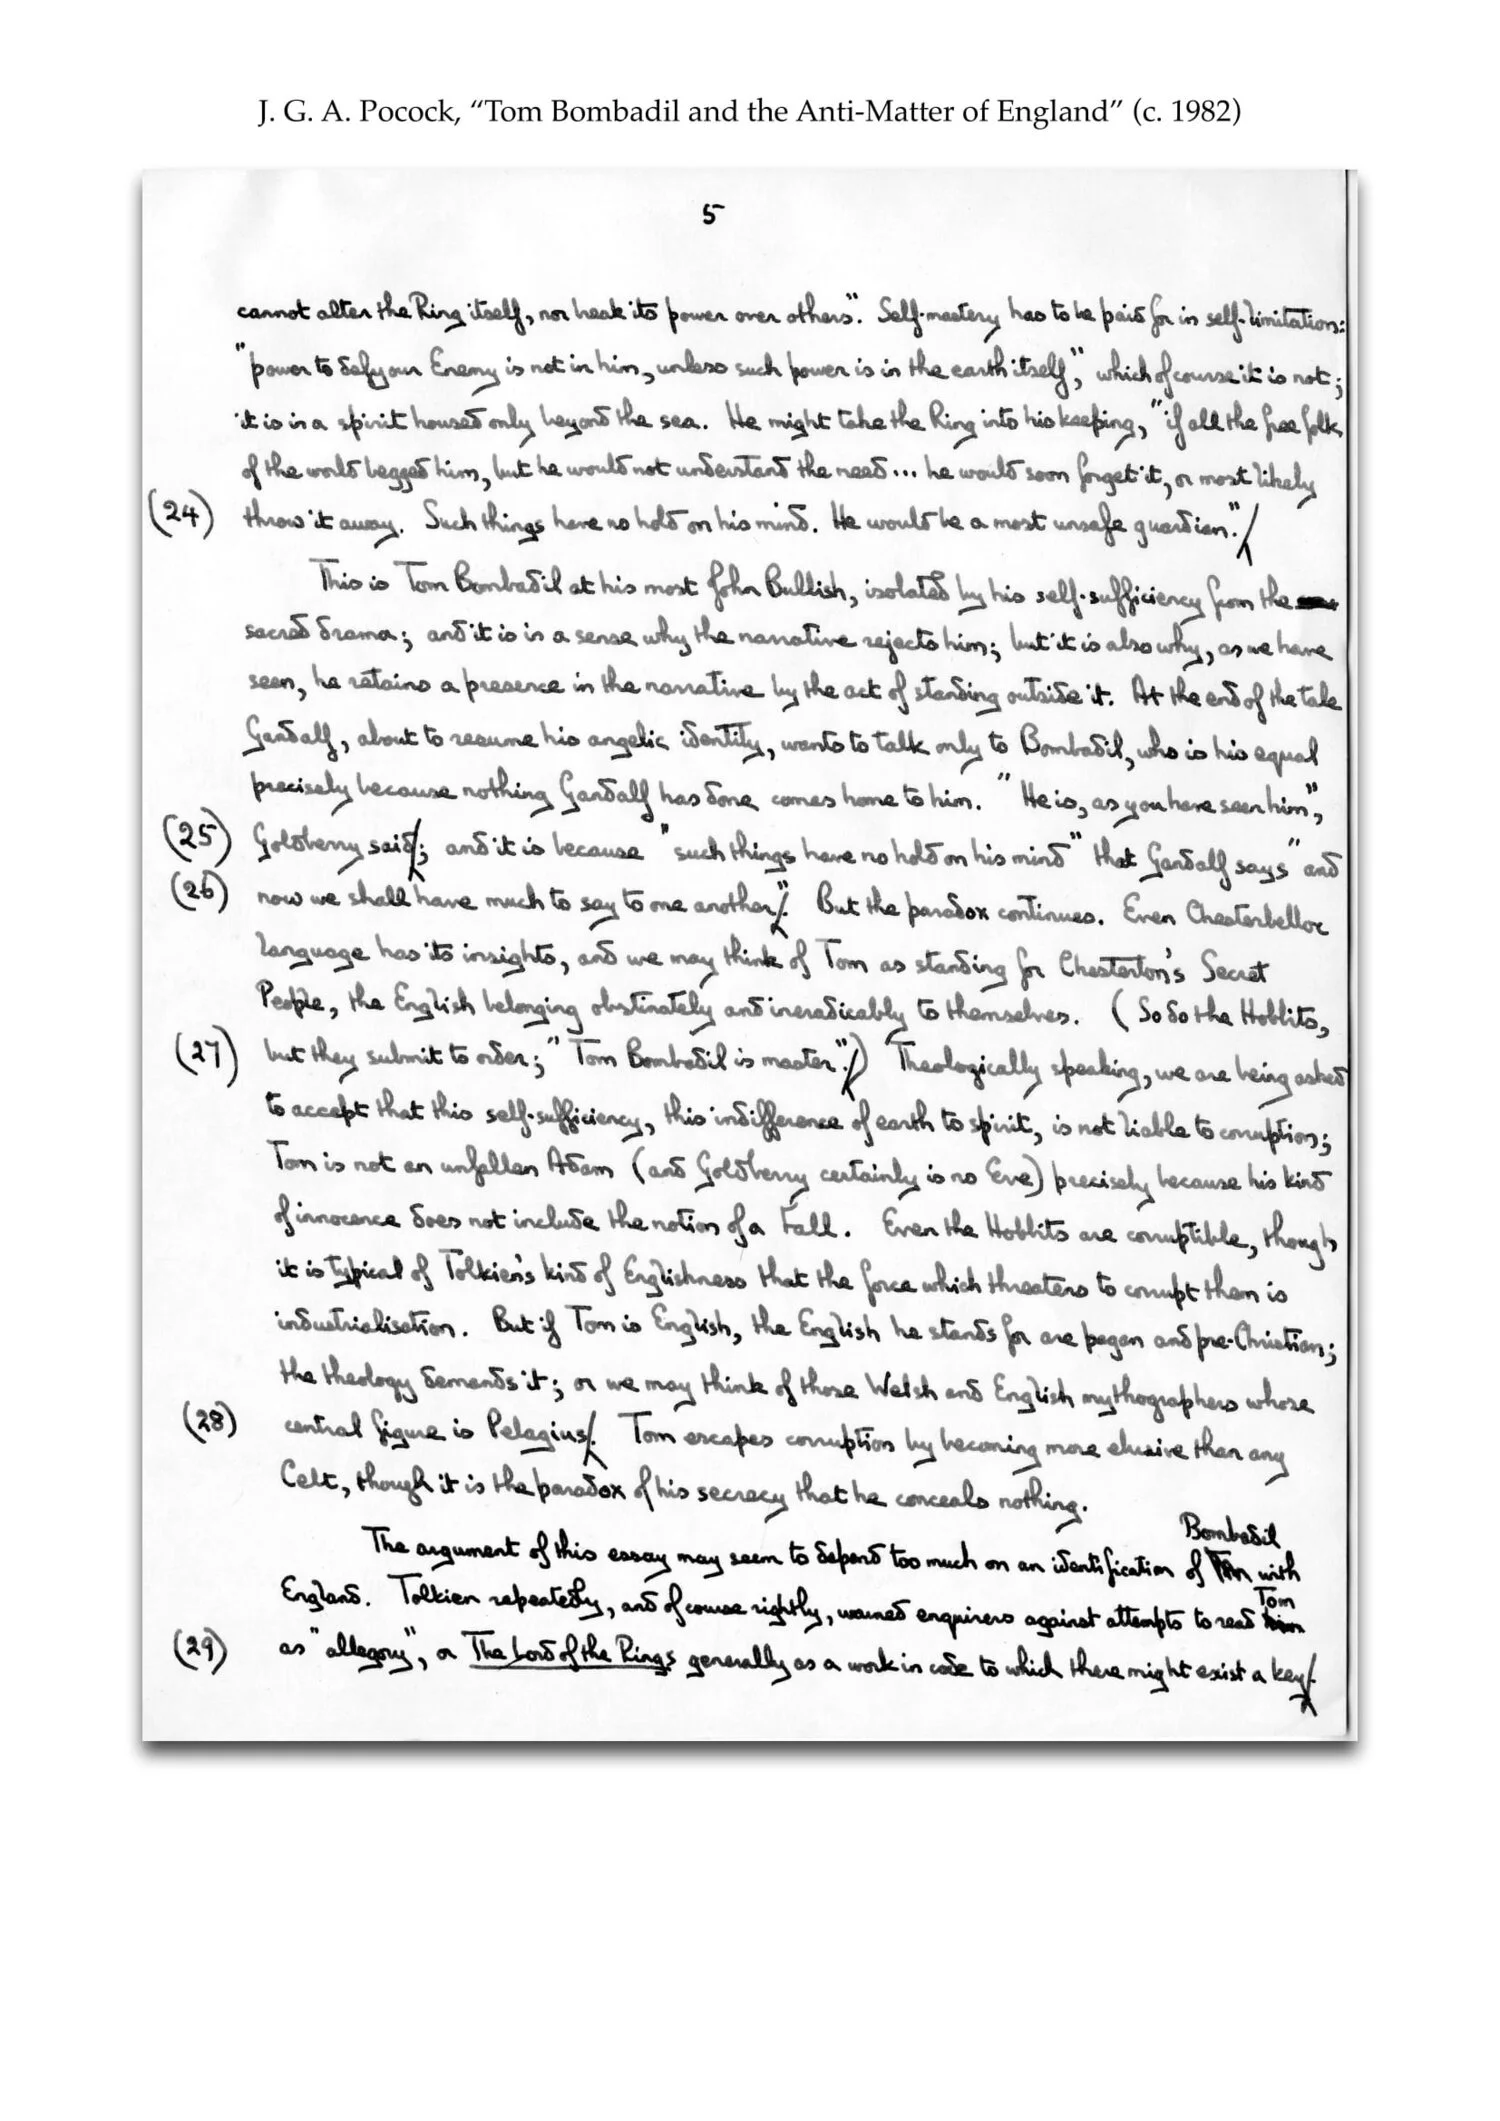 J. G. A. Pocock, “Tom Bombadil and the Anti-Matter of England” (c. 1982)
5
cannot alter the Ring itself, nor break its power over others". Self-mastery has to be paid for in self-limitation:
"power to defy our Enemy is not in him, unless such power is in the earth itself", which of course it is not;
it is in a spirit housed only beyond the sea. He might take the Ring into his keeping, "if all the free folk
of the world begged him, but he would not understand the need... he would soon forget it, or most likely
(24) throw it away. Such things have no hold on his mind. He would be a most unsafe guardian."/
This is Tom Bombadil at his most John Bullish, isolated by his self-sufficiency from the
sacred drama; and it is in a sense why the narrative rejects him; but it is also why, as we have
seen, he retains a presence in the narrative by the act of standing outside it. At the end of the tale
Gandalf, about to resume his angelic identity, wants to talk only to Bombadil, who is his equal
precisely because nothing Gandalf has done comes home to him. "He is, as you have seen him",
(25) Goldberry said/; and it is because "such things have no hold on his mind" that Gandalf says "and
(26) now we shall have much to say to one another"/. But the paradox continues. Even Chesterbelloc
language has its insights, and we may think of Tom as standing for Chesterton's Secret
People, the English belonging obstinately and ineradicably to themselves. (So do the Hobbits,
(27) but they submit to order; "Tom Bombadil is master"./) Theologically speaking, we are being asked
to accept that this self-sufficiency, this indifference of earth to spirit, is not liable to corruption;
Tom is not an unfallen Adam (and Goldberry certainly is no Eve) precisely because his kind
of innocence does not include the notion of a Fall. Even the Hobbits are corruptible, though
it is typical of Tolkien's kind of Englishness that the force which threatens to corrupt them is
industrialisation. But if Tom is English, the English he stands for are pagan and pre-Christian;
the theology demands it; or we may think of those Welsh and English mythographers whose
(28) central figure is Pelagius/. Tom escapes corruption by becoming more elusive than any
Celt, though it is the paradox of his secrecy that he conceals nothing.
Bombadil
The argument of this essay may seem to depend too much on an identification of Tom with
Tom
England. Tolkien repeatedly, and of course rightly, warned enquirers against attempts to read him
(29) as "allegory", or The Lord of the Rings generally as a work in code to which there might exist a key/.